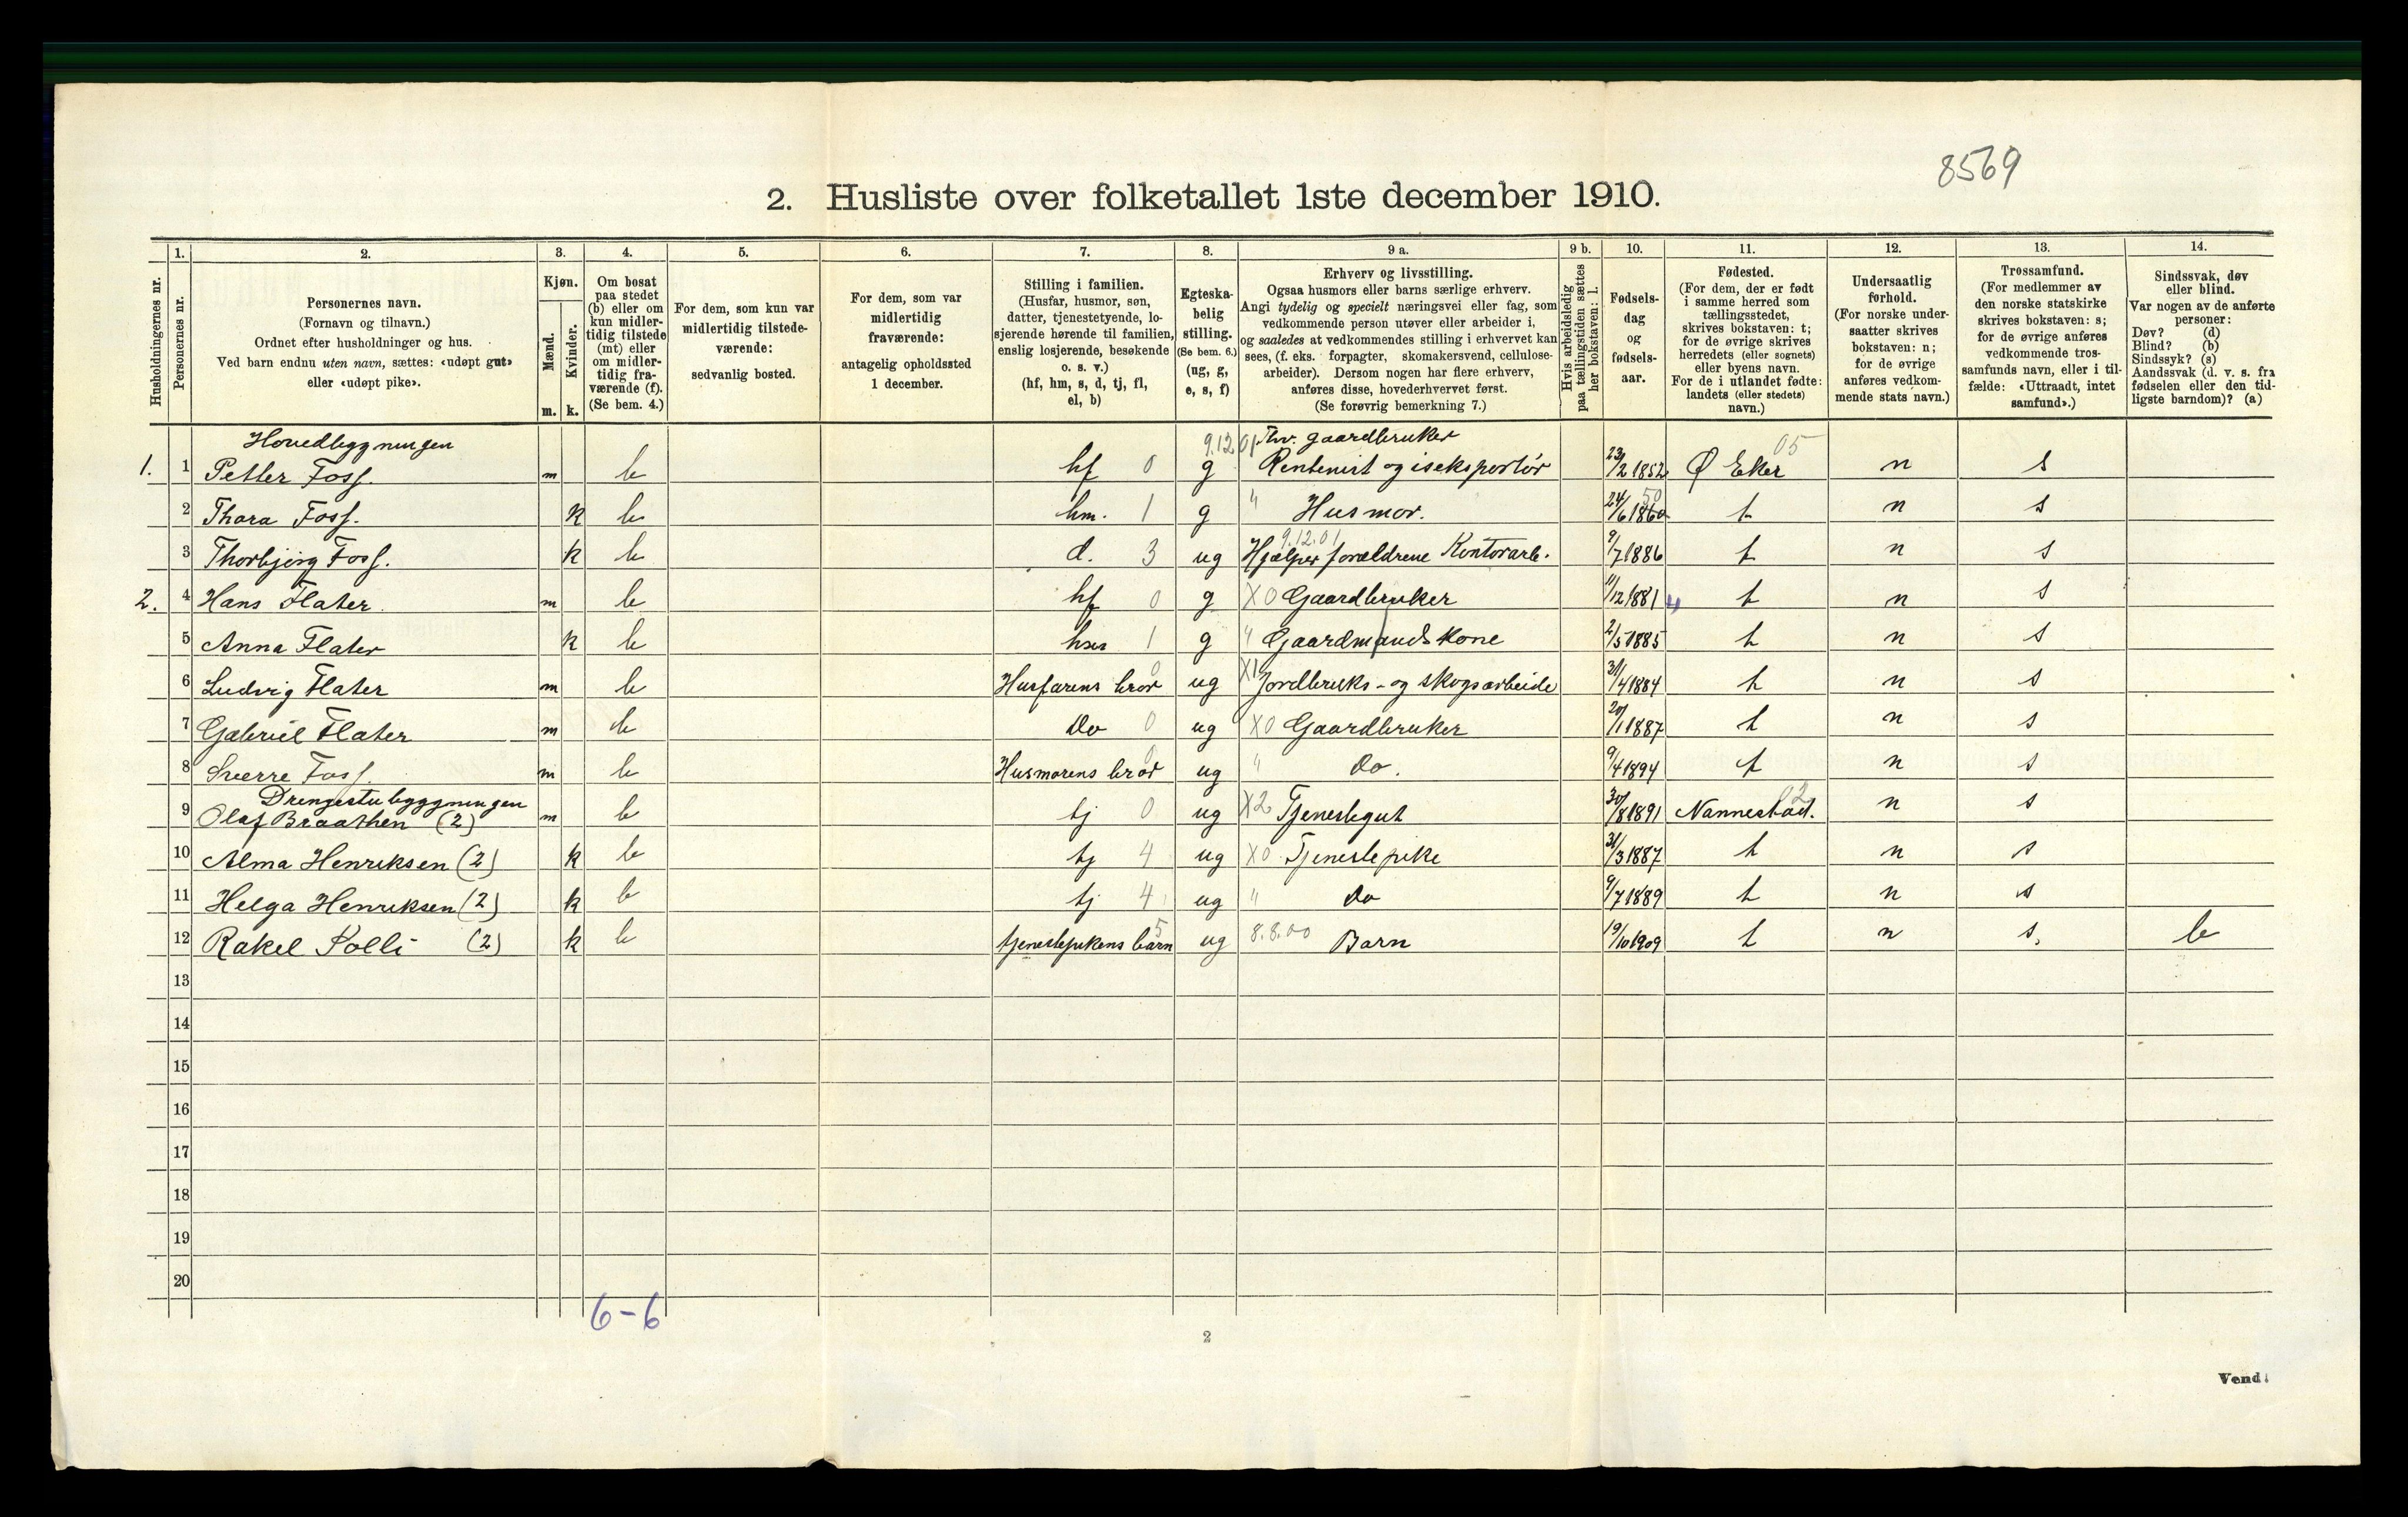 8569
2. Husliste over folketallet 1ste december 1910.
Husholdningernes nr.
1.
Personernes nr.
2.
Personernes navn.
(Fornavn og tilnavn.)
Ordnet efter husholdninger og hus.
Ved barn endnu uten navn, sættes: «udøpt gut»
eller «udøpt pike».
3.
Kjøn.
Mænd.
Kvinder.
m. k.
4.
Om bosat
paa stedet
(b) eller om
kun midler-
tidig tilstede
(mt) eller
om midler-
tidig fra-
værende (f).
(Se bem. 4.)
5.
For dem, som kun var
midlertidig tilstede-
værende:
sedvanlig bosted.
6.
For dem, som var
midlertidig
fraværende:
antagelig opholdssted
1 december.
7.
Stilling i familien.
(Husfar, husmor, søn,
datter, tjenestetyende, lo-
sjerende hørende til familien,
enslig losjerende, besøkende
o. s. v.)
(hf, hm, s, d, tj, fl,
el, b)
8.
Egteska-
belig
stilling.
(Se bem. 6.)
(ug, g,
e, s, f)
9 a.
Erhverv og livsstilling.
Ogsaa husmors eller barns særlige erhverv.
Angi tydelig og specielt næringsvei eller fag, som
vedkommende person utøver eller arbeider i,
og saaledes at vedkommendes stilling i erhvervet kan
sees, (f. eks. forpagter, skomakersvend, cellulose-
arbeider). Dersom nogen har flere erhverv,
anføres disse, hovederhvervet først.
(Se forøvrig bemerkning 7.)
9 b.
Hvis arbeidsledig
paa tællingstiden sættes
her bokstaven: l.
10.
Fødsels-
dag
og
fødsels-
aar.
11.
Fødested.
(For dem, der er født
i samme herred som
tællingsstedet,
skrives bokstaven: t;
for de øvrige skrives
herredets (eller sognets)
eller byens navn.
For de i utlandet fødte:
landets (eller stedets)
navn.)
12.
Undersaatlig
forhold.
(For norske under-
saatter skrives
bokstaven: n;
for de øvrige
anføres vedkom-
mende stats navn.)
13.
Trossamfund.
(For medlemmer av
den norske statskirke
skrives bokstaven: s;
for de øvrige anføres
vedkommende tros-
samfunds navn, eller i til-
fælde: «Uttraadt, intet
samfund».)
14.
Sindssvak, døv
eller blind.
Var nogen av de anførte
personer:
Døv? (d)
Blind? (b)
Sindssyk? (s)
Aandssvak (d. v. s. fra
fødselen eller den tid-
ligste barndom)? (a)
Hovedbygningen 9.12.01 Thv. gaardbruker 05
1. 1 Petter Foss. m b hf 0 g Rentenist og iseksportör 23/2 1852 Ø Eker n s
2 Thora Foss. k b hm. 1 g " Husmor. 24/6 1860 50 t n s
9.12.01
3 Thorbjörg Foss. k b d. 3 ug Hjælper forældrene Kontorarb. 9/7 1886 t n s
2. 4 Hans Flater. m b hf 0 g X0 Gaardbruker 11/12 1881 4 t n s
5 Anna Flater k b hm 1 g " Gaardmandskone 2/5 1885 t n s
6 Ludvig Flater m b Husfarens bror 0 ug X1 Jordbruks- og skogsarbeide 31/4 1884 t n s
7 Gabriel Flater m b do 0 ug X0 Gaardbruker 20/1 1887 t n s
8 Sverre Foss. m b Husmorens bror 0 ug " do. 9/4 1894 t n s
Drengestubyggningen 02
9 Olaf Braathen (2) m b tj 0 ug X2 Tjenestegut 30/8 1891 Nannestad. n s
10 Alma Henriksen (2) k b tj 4 ug X0 Tjenestepike 31/3 1887 t n s
11 Helga Henriksen (2) k b tj 4 ug " do 9/7 1889 t n s
12 Rakel Kolli (2) k b tjenestepikens barn 5 ug 8.8.00 Barn 19/10 1909 t n s. b
13
14
15
16
17
18
19
20
6-6
2
Vend!